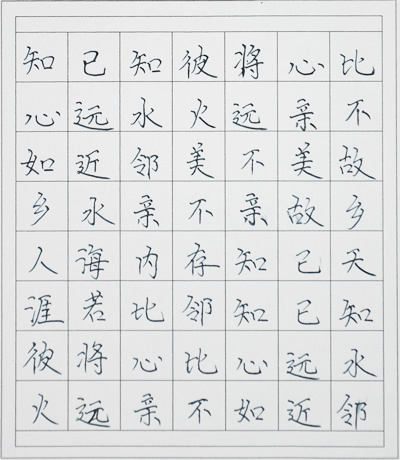 知已知彼将心比
心远水火远亲不
如近邻美不美故
乡水亲不亲故乡
人海内存知己天
涯若比邻知已知
彼将心比心远水
火远亲不如近邻